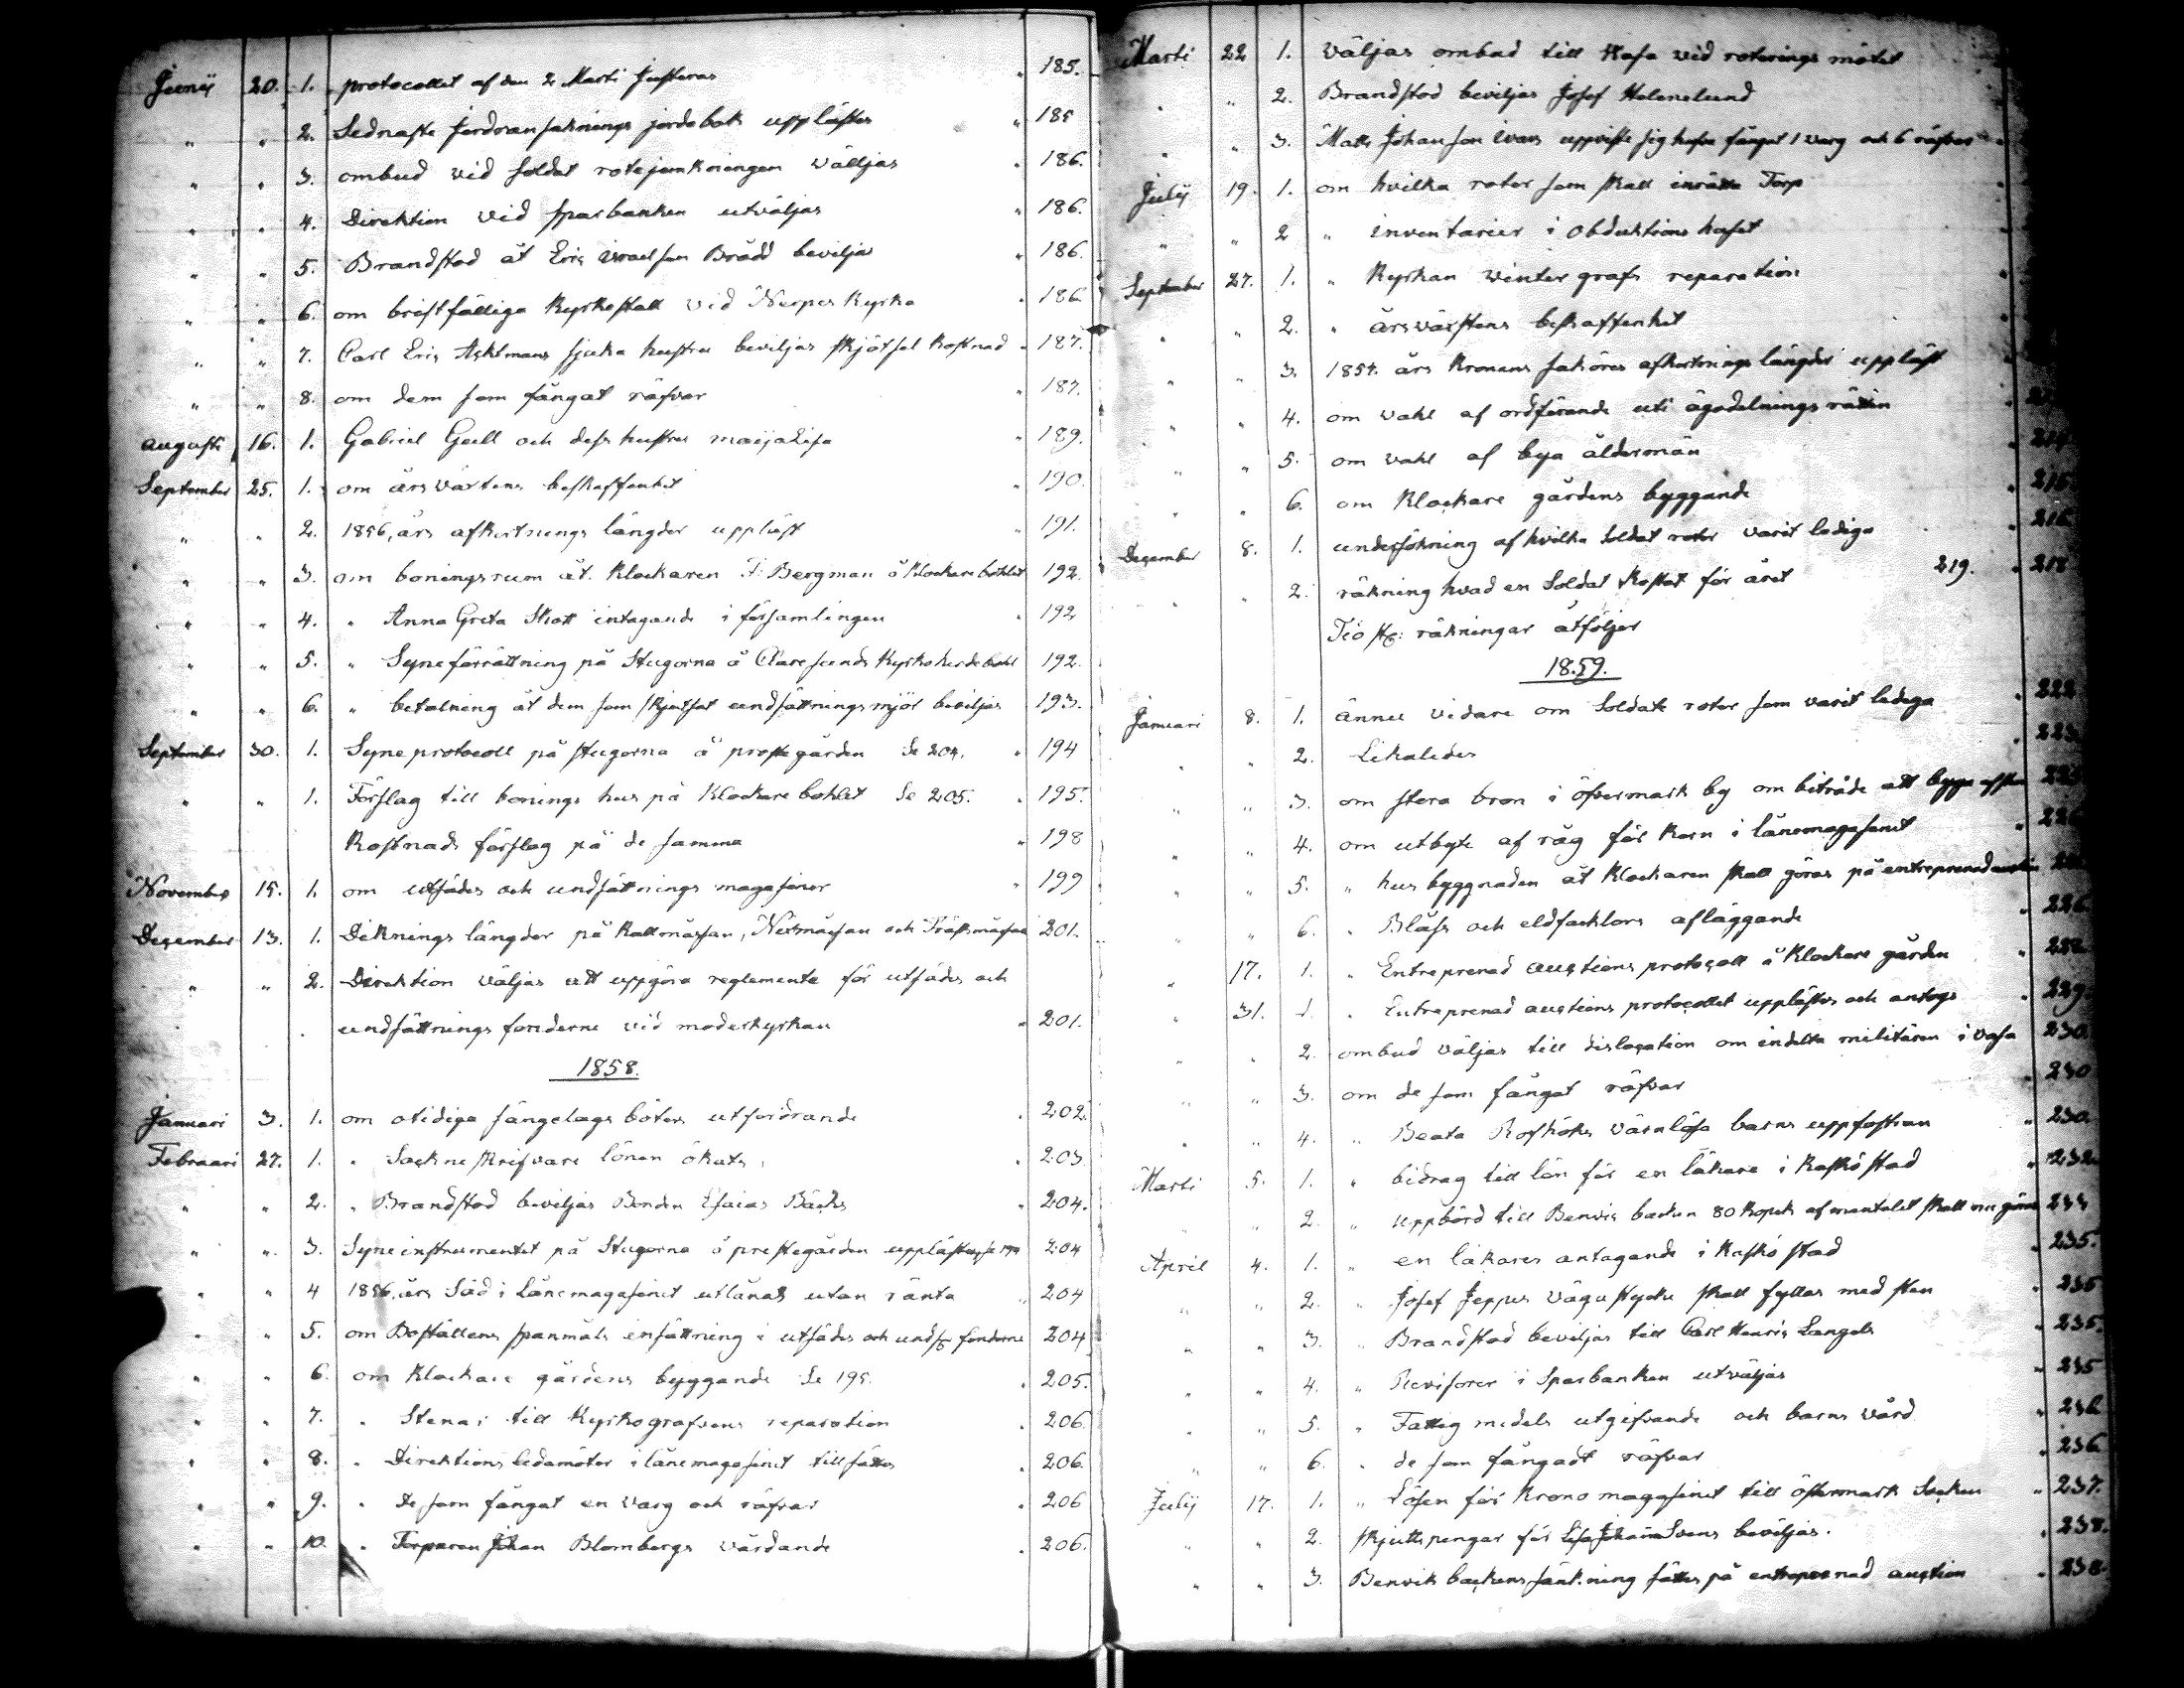 Junij 20. 1. protocollet af den 2 Marti Justeras " 185.
" " 2. Sednaste jordransaknings jordabok upplästes " 185
" " 3. ombud vid soldat rotejemkningen välljas " 186.
" " 4. Direktion vid sparbanken utväljas " 186.
" " 5. Brandstod åt Eric Israelson Brädd beviljas " 186.
" " 6. om bristfälliga Kyrkostall vid Nerpes Kyrka " 186.
" " 7. Carl Eric Aklmans sjuka hustru beviljas skjötsel kostnad " 187.
" " 8. om dem som fångat räfvar " 187.
augusti 16. 1. Gabriel Gull och dess hustru maijaLisa " 189.
September 25. 1. om årsväxtens beskaffenhet " 190.
" " 2. 1856, års afkortnings längder uppläst " 191.
" " 3. om boningsrum åt Klockaren F. Bergman å Klockarebohlet 192.
" " 4. " Anna Greta Skatt intagande i församlingen " 192
" " 5. " Syneförrättning på Stugorna å Kyrkoherdebohl 192.
" " 6. " betalning åt dem som skjutsat undsättningsmjöl beviljas 193.
September 30. 1. Syneprotocoll på stugorna å prostegården Se 204. " 194
" " 1. Förslag till bonings hus på Klockarebohlet Se 205. " 195.
Kostnads förslag på de samma " 198
November 15. 1. om utsädes och undsättnings magasiner " 199
December 13. 1. Diknings längder på Kallmåssan, Nixmåssan och Träskmåssan 201.
" " 2. Direktion väljas att uppgöra reglemente för utsädes och
undsättnings fonderne vid moderkyrkan " 201.
1858.
Januari 3. 1. om otidiga sängelags böters utfordrande " 202.
Februari 27. 1. " Sockneskrifvare lönen ökats " 203
" " 2. " Brandstod beviljas Bonden Esaias Bäcks " 204.
" " 3. Syneinstrumentet på Stugorna å prestegården upplästes se 194 204
" " 4 1856, års Säd i Lånemagasinet utlånas utan ränta " 204
" " 5. om Boställens spanmåls insättning i utsädes och fonderne 204
" " 6. om Klockare gårdens byggande Se 195. " 205.
" " 7. " Stenar till Kyrkografvens reparation " 206.
" " 8. " Direktions ledamöter i lånemagasinet tillsättes " 206.
" " 9. " De som fångat en varg och räfvar " 206
" " 10. " Torparen Johan Blombergs vårdande " 206.
Marti 22 1. väljas ombud till Vasa vid roterings mötet
" " 2. Brandstod beviljas Josef Helenelund
" " 3. Matts Johansson Ivars uppviste sig hafva fångat 1 varg och 6 räfvar
Julij 19. 1. om hvilka rotor som skall inrätta Torp
" " 2 " inventarier i Obduktions huset
September 27. 1. " Kyrkan winter grafs reparation
" " 2. " årsväxtens beskaffenhet
" " 3. 1857. års Kronans saköres afkortnings längder uppläst
" " 4. om wahl af ordförande uti ägodelnings rätten
" " 5. om wahl af bya åldermän 214.
" " 6. om Klockare gårdens byggande " 215.
December 8. 1. undersökning af hvilka Soldat rotor varit lediga " 216
" " 2. räkning hvad en Soldat kostat för året 219. " 218
Tio st: räkningar åtföljer
1859.
Januari 8. 1. ännu vidare om Soldats rotor som varit lediga " 222
" " 2. Likaledes " 223
" " 3. om stora bron i öfvermark by om biträde att bygga
" " 4. om utbyte af råg för Korn i lånemagasinet
" " 5. " hus byggnaden åt Klockaren skall göras på entreprenad
" " 6. " Blåss och eldfacklors afläggande " 226
" 17. 1. " Entreprenad auctions protocoll å Klockare gården " 228
" 31. 1. " Entreprenad auctions protocollet upplästes och antogs " 229.
" " 2. ombud väljas till dislocation om indelta militären i Vasa 230.
" " 3. om de som fångat räfvar " 230
" " 4. " Beata värnlösa barns uppfostran " 230.
Marti 5. 1. " bidrag till lön för en läkare i Kaskö stad " 232.
" " 2. " uppbörd till Benvik backen 80 kopek af mantalet skall
April 4. 1. " en läkares antagande i Kaskö stad " 235.
" " 2. " Josef Jeppes vägu stycke skall fyllas med sten " 235
" " 3. " Brandstod beviljas till Carl Henric Langels " 235.
" " 4. " Revisorer i Sparbanken utväljas " 235
" " 5. " Fattig medels utgifvande och barns vård " 236.
" " 6. " de som fångadt räfvar " 236
Julij 17. 1. " Lösen för Krono magasinet till östermark Socken " 237.
" " 2. skjutts pengar för Lisa Johanna Svens beviljas. " 238.
" " 3. Benvik backens sänkning sättes på entreprenad auction " 238.